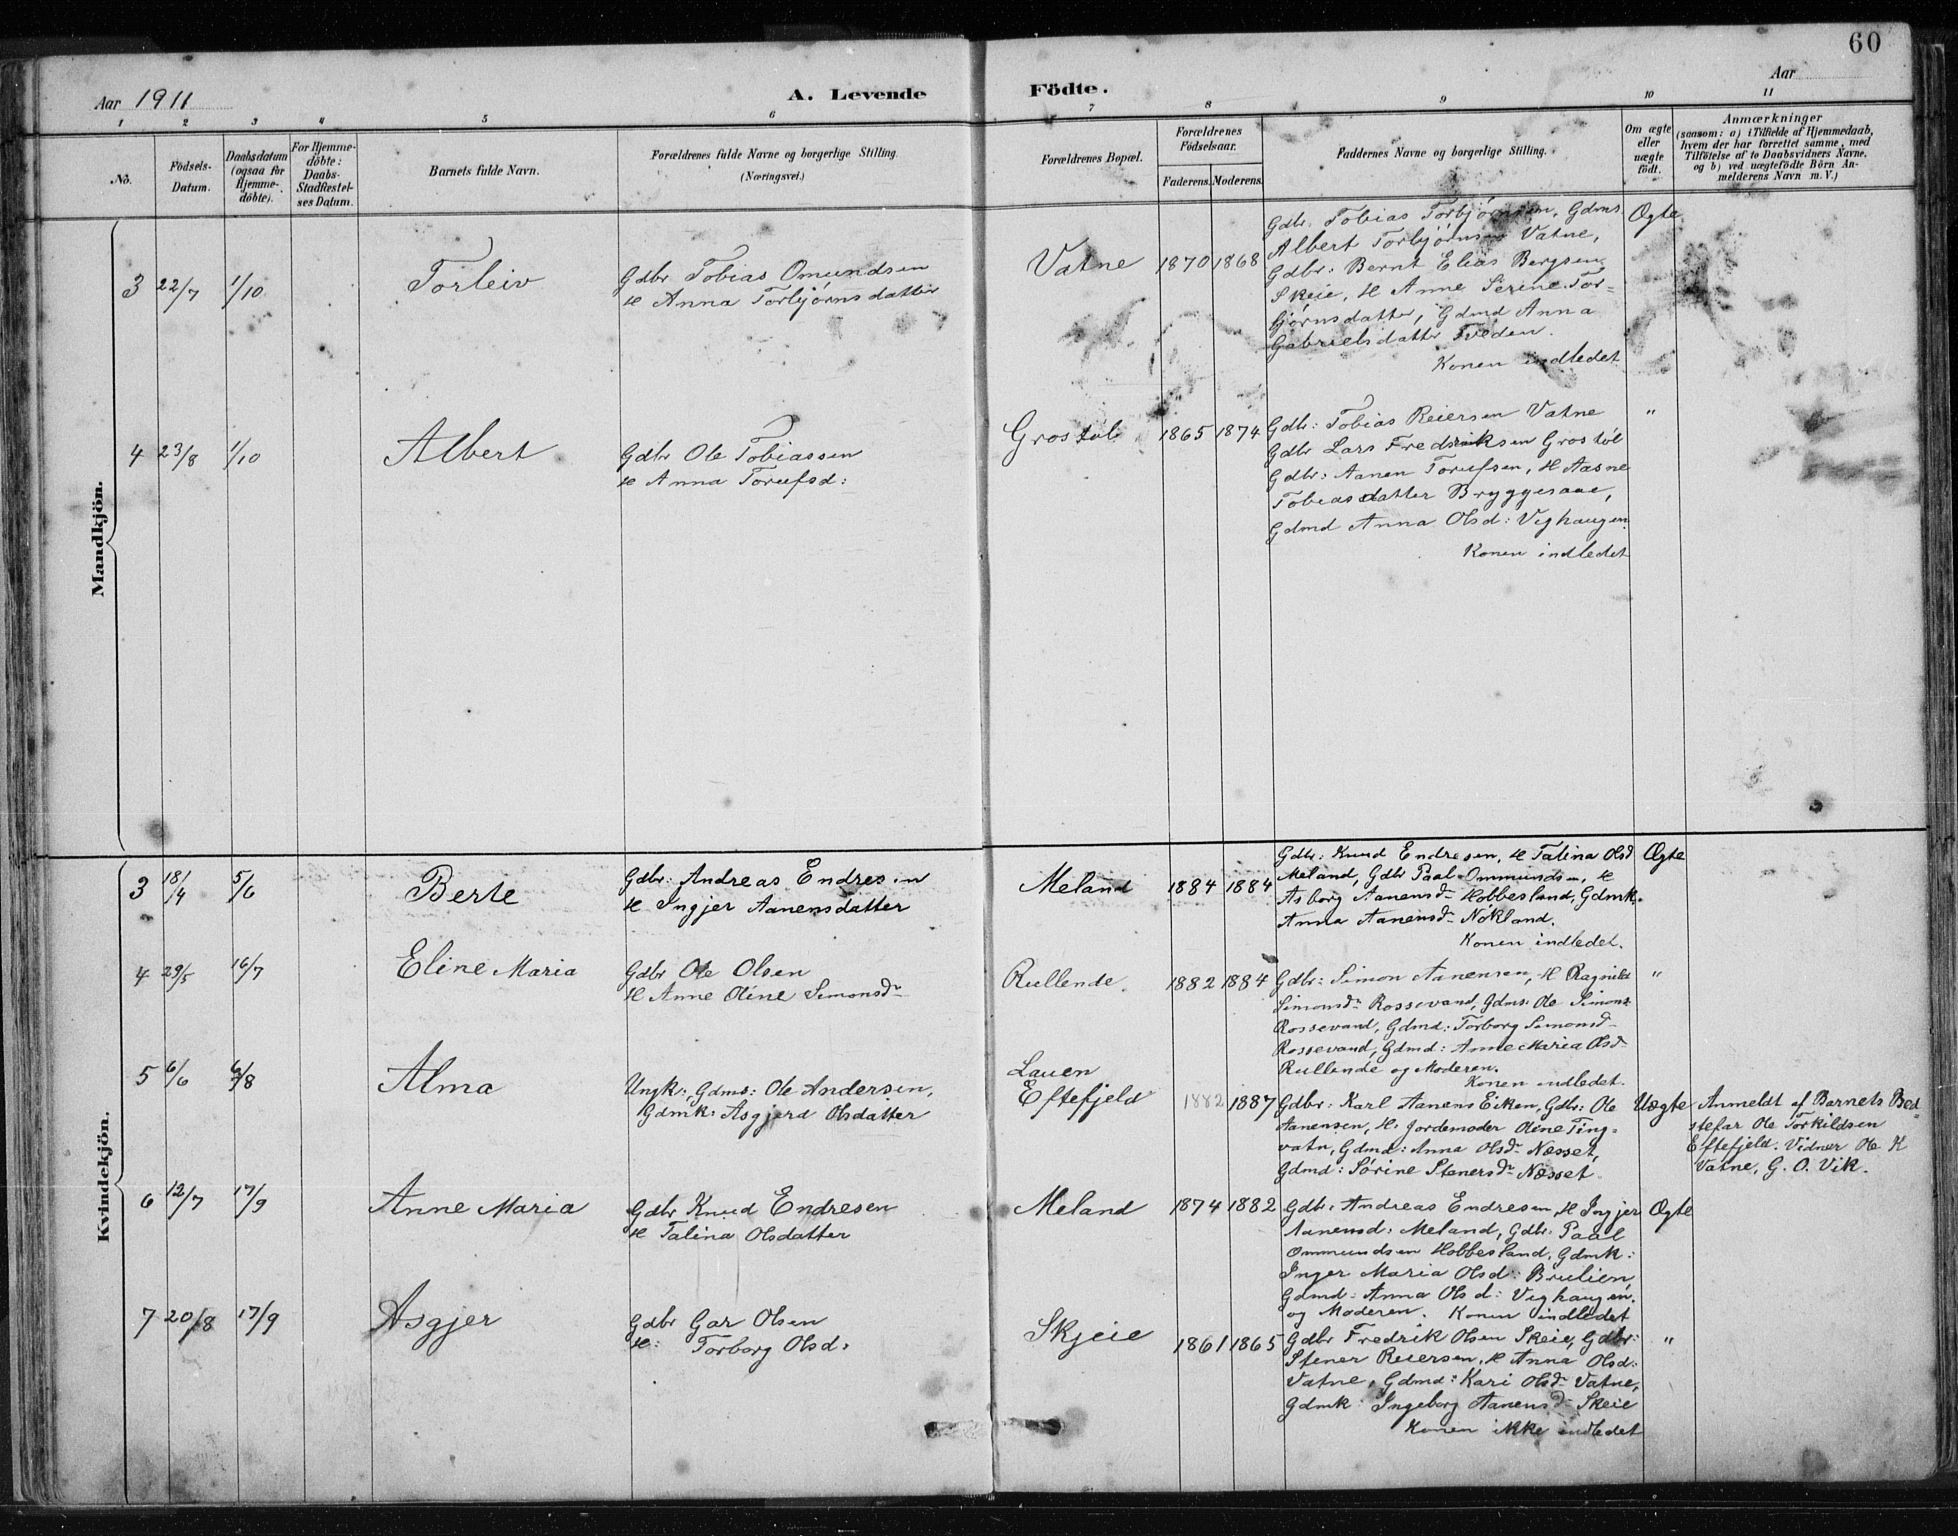 60
Aar 1911
A. Levende Födte.
Aar
1 2 3 4 5 6 7 8 9 10 11
No.
Födsels-
Datum.
Daabsdatum
(ogsaa for
Hjemme-
döbte).
For Hjemme-
döbte:
Daabs-
Stadfæstel-
ses Datum.
Barnets fulde Navn.
Forældrenes fulde Navne og borgerlige Stilling
(Næringsvei.)
Forældrenes Bopæl.
Forældrenes
Födselsaar.
Faderens. Moderens.
Faddernes Navne og borgerlige Stilling.
Om ægte
eller
uægte
födt.
Anmærkninger
(saasom: a) i Tilfælde af Hjemmedaab,
hvem der har forrettet samme, med
Tilföielse af to Daabsvidners Navne,
og b) ved uægtefödte Börn An-
melderens Navn m. V.)
Mandkjön.
3 22/7 1/10 Torleiv
Gdbr Tobias Omundsen
H Anna Torbjørnsdatter
Vatne 1870 1868
Gdbr. Tobias Torbjørnsen, Gdms.
Albert Torbjørnsen Vatne,
Gdbr: Bernt Elias Bergsen
Skeie, H Anne Serine Tor=
bjørnsdatter, Gdmd Anna
Gabrielsdatter Tveden.
Konen indledet
Øgte
4 23/8 1/10 Albert
Gdbr Ole Tobiassen
H Anna Torufsd:
Grostøl 1865 1874
Gdbr: Tobias Reiersen Vatne
Gdbr Lars Fredriksen Grostøl
Gdbr: Aanen Torufsen, H Aasne
Tobiasdatter Bryggesaae,
Gdmd Anna Olsd: Vighaugen
Konen indledet
"
Kvindekjön.
3 18/4 5/6 Berte
Gdbr: Andreas Endresen
H Ingjer Aanensdatter
Meland 1884 1884
Gdbr: Knud Endresen, H Talina Olsd
Meland, Gdbr Paal Ommundsen, H
Asborg Aanensd- Hobbesland, Gdmk.
Anna Aanensd- Nøkland.
Konen indledet.
Øgte
4 29/5 16/7 Eline Maria
Gdbr Ole Olsen
H Anne Oline Simonsd-
Rullende. 1882 1884
Gdbr: Simon Aanensen, H Ragnild
Simonsd- Rossevand, Gdms: Ole Simons
Rossevand, Gdmd: Torborg Simonsd-
Rossevand, Gdmd: Anne Maria Olsd-
Rullende og Moderen.
Konen indledet.
"
5 6/6 6/8 Alma
Ungk: Gdms: Ole Andersen,
Gdmk: Asgjerd Olsdatter
Lauen
Eftefjeld 1882 1887
Gdbr: Karl Aanens Eiken, Gdbr: Ole
Aanensen, H. Jordemoder Oline Ting=
vatn, Gdmd: Anna Olsd- Næsset,
Gdmd: Sørine Stenersd- Næsset.
Uægte
Anmeldt af Barnets Bed=
stefar Ole Torkildsen
Eftefjeld. Vidner Ole K
Vatne, G. O. Vik.
6 12/7 17/9 Anne Maria
Gdbr Knud Endresen
H Talina Olsdatter
Meland 1874 1882
Gdbr. Andreas Endresen, H Ingjer
Aanensd: Meland, Gdbr: Paal
Ommundsen Hobbesland, Gdmk:
Inger Maria Olsd: Brulien,
Gdmd: Anna Olsd: Vighaugen,
og Moderen. Konen indledet
Øgte
7 20/8 17/9 Asgjer
Gdbr Gar Olsen
H: Torborg Olsd.
Skjeie 1861 1865
Gdbr Fredrik Olsen Skeie, Gdbr:
Stener Reiersen, H Anna Olsd:
Vatne, Gdmd: Kari Olsd- Vatne,
Gdmk: Ingeborg Aanensd- Skeie
Konen ikke indledet
"